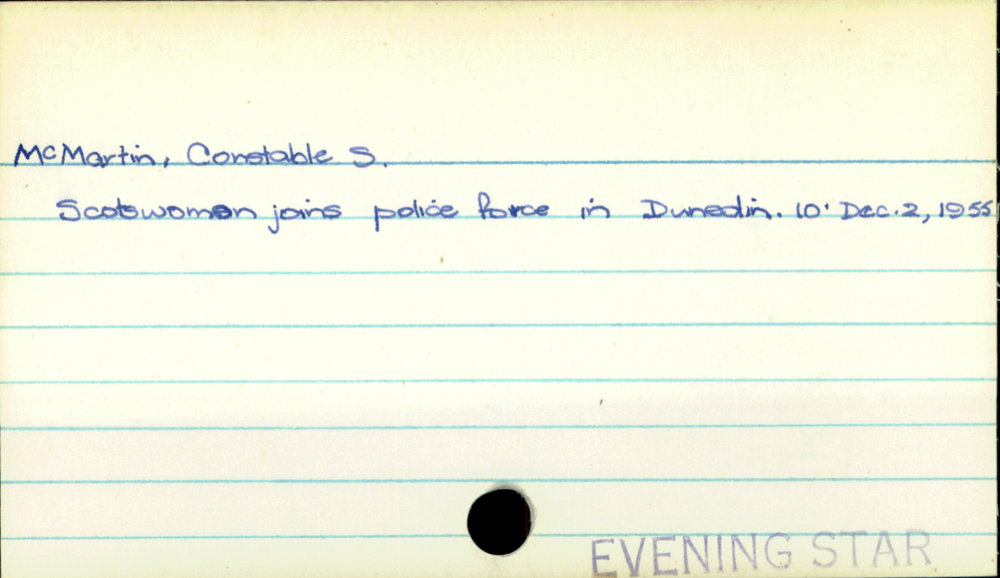 McMartin, Constable S.
Scotswoman joins police force in Dunedin. 10. Dec. 2, 1955
EVENING STAR